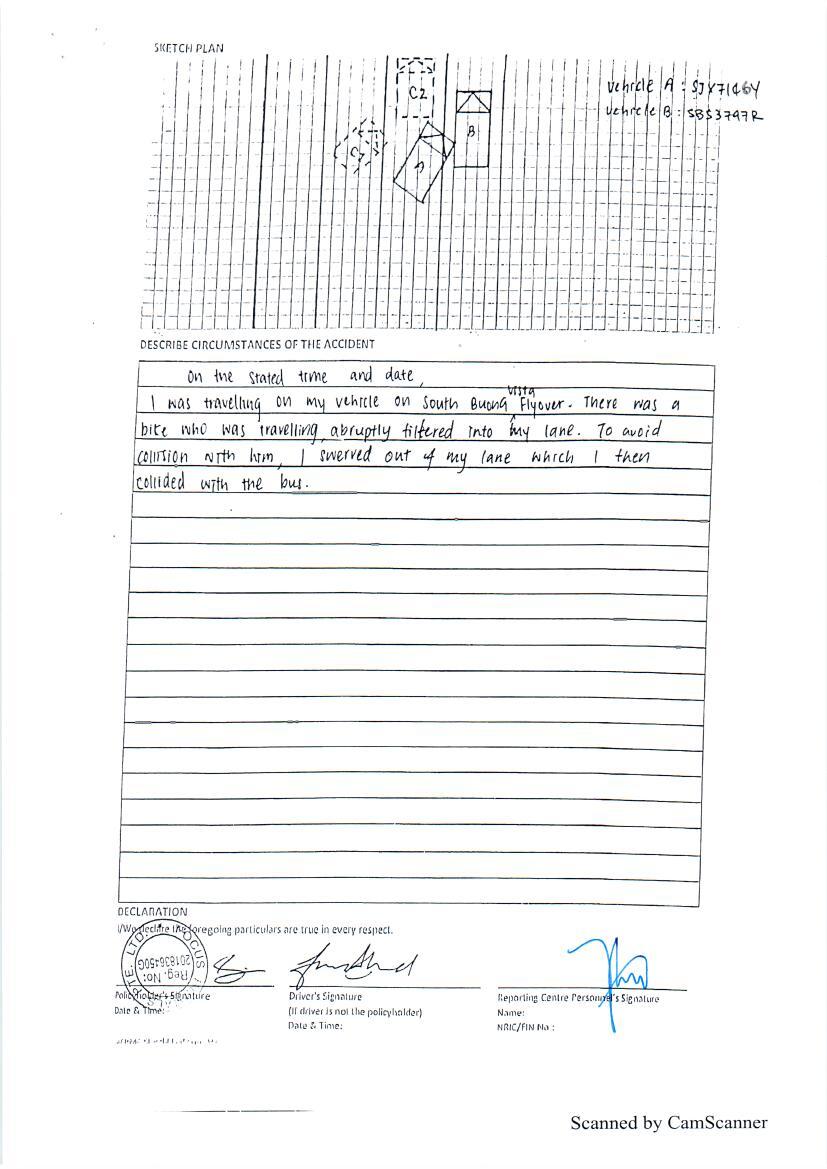 SKETCH PLAN
Vehicle A : SJX7146Y
Vehicle B : SBS3747R
C2
B
A
DESCRIBE CIRCUMSTANCES OF THE ACCIDENT
On the stated time and date,
I was travelling on my vehicle on South Buona Vista Flyover. There was a
bike who was travelling, abruptly filtered into my lane. To avoid
collision with him, I swerved out of my lane which I then
collided with the bus.
DECLARATION
I/We declare the foregoing particulars are true in every respect.
PTE. LTD.
Reg. No:
201836450G
Policyholder's Signature
Date & Time:
Driver's Signature
(If driver is not the policyholder)
Date & Time:
Reporting Centre Personnel's Signature
Name:
NRIC/FIN No :
Scanned by CamScanner